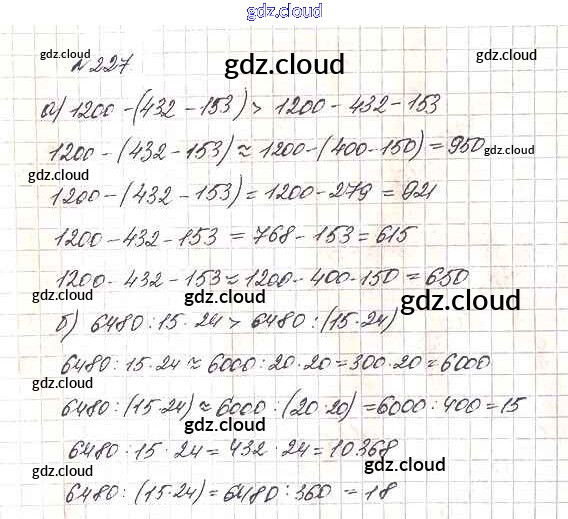 gdz.cloud
№227
gdz.cloud
gdz.cloud
а) 1200 - (432 - 153) > 1200 - 432 - 153
1200 - (432 - 153) ≈ 1200 - (400 - 150) = 950
gdz.cloud
gdz.cloud
1200 - (432 - 153) = 1200 - 279 = 921
1200 - 432 - 153 = 768 - 153 = 615
1200 - 432 - 153 ≈ 1200 - 400 - 150 = 650
gdz.cloud
gdz.cloud
gdz.cloud
б) 6480 : 15 · 24 > 6480 : (15 · 24)
6480 : 15 · 24 ≈ 6000 : 20 · 20 = 300 · 20 = 6000
gdz.cloud
6480 : (15 · 24) ≈ 6000 : (20 · 20) = 6000 : 400 = 15
gdz.cloud
6480 : 15 · 24 = 432 · 24 = 10368
gdz.cloud
gdz.cloud
6480 : (15 · 24) = 6480 : 360 = 18